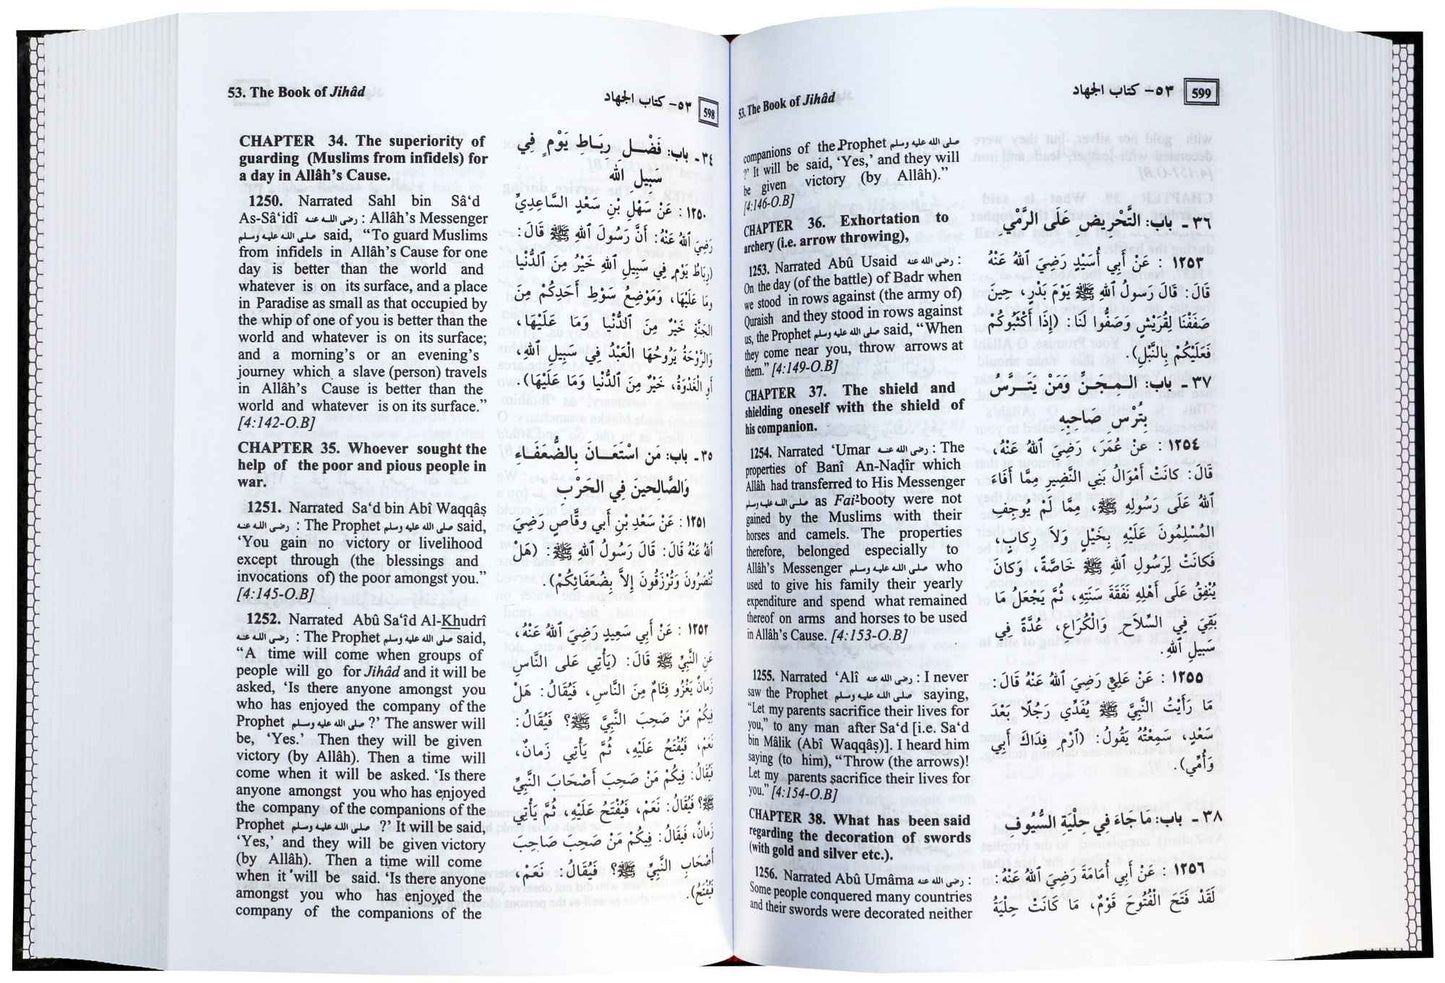 53. The Book of Jihâd
٥٣- كتاب الجهاد
598
CHAPTER 34. The superiority of
guarding (Muslims from infidels) for
a day in Allâh's Cause.
1250. Narrated Sahl bin Sâ‘d
As-Sâ‘idî رضى الله عنه : Allâh's Messenger
صلى الله عليه وسلم said, “To guard Muslims
from infidels in Allâh's Cause for one
day is better than the world and
whatever is on its surface, and a place
in Paradise as small as that occupied by
the whip of one of you is better than the
world and whatever is on its surface;
and a morning's or an evening's
journey which a slave (person) travels
in Allâh's Cause is better than the
world and whatever is on its surface.”
[4:142-O.B]
CHAPTER 35. Whoever sought the
help of the poor and pious people in
war.
1251. Narrated Sa‘d bin Abî Waqqâṣ
رضى الله عنه : The Prophet صلى الله عليه وسلم said,
‘You gain no victory or livelihood
except through (the blessings and
invocations of) the poor amongst you.”
[4:145-O.B]
1252. Narrated Abû Sa‘îd Al-Khudrî
رضى الله عنه : The Prophet صلى الله عليه وسلم said,
“A time will come when groups of
people will go for Jihâd and it will be
asked, ‘Is there anyone amongst you
who has enjoyed the company of the
Prophet صلى الله عليه وسلم ?’ The answer will
be, ‘Yes.’ Then they will be given
victory (by Allâh). Then a time will
come when it will be asked. ‘Is there
anyone amongst you who has enjoyed
the company of the companions of the
Prophet صلى الله عليه وسلم ?’ It will be said,
‘Yes,’ and they will be given victory
(by Allâh). Then a time will come
when it will be said. ‘Is there anyone
amongst you who has enjoyed the
company of the companions of the
٣٤ ـ باب: فَضْـل رِبـاطِ يَوْمٍ فِي
سَبِيلِ اللهِ
١٢٥٠ : عَنْ سَهْلِ بْنِ سَعْدٍ السَّاعِدِيِّ
رَضِيَ اللهُ عَنْهُ: أَنَّ رَسُولَ اللهِ ﷺ قَالَ:
(رِبَاطُ يَوْمٍ فِي سَبِيلِ اللهِ خَيْرٌ مِنَ الدُّنْيَا
وَمَا عَلَيْهَا، وَمَوْضِعُ سَوْطِ أَحَدِكُمْ مِنَ
الجَنَّةِ خَيْرٌ مِنَ الدُّنْيَا وَمَا عَلَيْهَا،
وَالرَّوْحَةُ يَرُوحُهَا الْعَبْدُ فِي سَبِيلِ اللهِ،
أَوِ الْغَدْوَةُ، خَيْرٌ مِنَ الدُّنْيَا وَمَا عَلَيْهَا).
٣٥ ـ باب: مَن اسْتَعَـانَ بِالضُّعَفَـاءِ
وَالصَّالِحِينَ فِي الحَرْبِ
١٢٥١ : عَنْ سَعْدِ بْنِ أَبِي وقَّاصٍ رَضِيَ
اللهُ عَنْهُ قَالَ: قَالَ رَسُولُ اللهِ ﷺ: (هَلْ
تُنْصَرُونَ وَتُرْزَقُونَ إِلاَّ بِضُعَفَائِكُمْ).
١٢٥٢ : عَنْ أَبِي سَعِيدٍ رَضِيَ اللهُ عَنْهُ،
عَنِ النَّبِيِّ ﷺ قَالَ: (يَأْتِي عَلَى النَّاسِ
زَمَانٌ يَغْزُو فِئَامٌ مِنَ النَّاسِ، فَيُقَالُ: هَلْ
فِيكُمْ مَنْ صَحِبَ النَّبِيَّ ﷺ؟ فَيُقَالُ:
نَعَمْ، فَيُفْتَحُ عَلَيْهِ، ثُمَّ يَأْتِي زَمانٌ،
فَيُقَالُ: فِيكُمْ مَنْ صَحِبَ أَصْحَابَ النَّبِيِّ
ﷺ؟ فَيُقَالُ: نَعَمْ، فَيُفْتَحُ عَلَيْهِ، ثُمَّ يَأْتِي
زَمَانٌ، فَيُقَالُ: فِيكُمْ مَنْ صَحِبَ صَاحِبَ
أَصْحَابِ النَّبِيِّ ﷺ؟ فَيُقَالُ: نَعَمْ،
فَيُفْتَحُ).
53. The Book of Jihâd
٥٣- كتاب الجهاد
599
companions of the Prophet صلى الله عليه وسلم
?’ It will be said, ‘Yes,’ and they will
be given victory (by Allâh).”
[4:146-O.B]
CHAPTER 36. Exhortation to
archery (i.e. arrow throwing),
1253. Narrated Abû Usaid رضى الله عنه :
On the day (of the battle) of Badr when
we stood in rows against (the army of)
Quraish and they stood in rows against
us, the Prophet صلى الله عليه وسلم said, “When
they come near you, throw arrows at
them.” [4:149-O.B]
CHAPTER 37. The shield and
shielding oneself with the shield of
his companion.
1254. Narrated ‘Umar رضى الله عنه : The
properties of Banî An-Naḍîr which
Allâh had transferred to His Messenger
صلى الله عليه وسلم as Fai-booty were not
gained by the Muslims with their
horses and camels. The properties
therefore, belonged especially to
Allâh's Messenger صلى الله عليه وسلم who
used to give his family their yearly
expenditure and spend what remained
thereof on arms and horses to be used
in Allâh's Cause. [4:153-O.B]
1255. Narrated ‘Alî رضى الله عنه : I never
saw the Prophet صلى الله عليه وسلم saying,
“Let my parents sacrifice their lives for
you,” to any man after Sa‘d [i.e. Sa‘d
bin Mâlik (Abî Waqqâṣ)]. I heard him
saying (to him), “Throw (the arrows)!
Let my parents sacrifice their lives for
you.” [4:154-O.B]
CHAPTER 38. What has been said
regarding the decoration of swords
(with gold and silver etc.).
1256. Narrated Abû Umâma رضى الله عنه :
Some people conquered many countries
and their swords were decorated neither
٣٦ ـ باب: التَّحْرِيضِ عَلَى الرَّمْيِ
١٢٥٣ : عَنْ أَبِي أُسَيْدٍ رَضِيَ اللهُ عَنْهُ
قَالَ: قَالَ رَسُولُ اللهِ ﷺ يَوْمَ بَدْرٍ، حِينَ
صَفَفْنَا لِقُرَيْشٍ وَصَفُّوا لَنَا: (إِذَا أَكْثَبُوكُمْ
فَعَلَيْكُمْ بِالنَّبْلِ).
٣٧ ـ باب: الـمِجَـنِّ وَمَنْ يَتَـرَّسُ
بِتُرْسِ صَاحِبِهِ
١٢٥٤ : عَنْ عُمَرَ، رَضِيَ اللهُ عَنْهُ،
قَالَ: كانَتْ أَمْوَالُ بَنِي النَّضِيرِ مِمَّا أَفَاءَ
اللهُ عَلَى رَسُولِهِ ﷺ، مِمَّا لَمْ يُوجِفِ
المُسْلِمُونَ عَلَيْهِ بِخَيْلٍ وَلاَ رِكابٍ،
فَكانَتْ لِرَسُولِ اللهِ ﷺ خَاصَّةً، وَكانَ
يُنْفِقُ عَلَى أَهْلِهِ نَفَقَةَ سَنَتِهِ، ثُمَّ يَجْعَلُ مَا
بَقِيَ فِي السِّلاَحِ وَالْكُرَاعِ، عُدَّةً فِي
سَبِيلِ اللهِ.
١٢٥٥ : عَنْ عَلِيٍّ رَضِيَ اللهُ عَنْهُ قَالَ:
مَا رَأَيْتُ النَّبِيَّ ﷺ يُفَدِّي رَجُلًا بَعْدَ
سَعْدٍ، سَمِعْتُهُ يَقُولُ: (ارْمِ فِدَاكَ أَبِي
وَأُمِّي).
٣٨ ـ باب: مَا جَاءَ فِي حِلْيَةِ السُّيُوفِ
١٢٥٦ : عَنْ أَبِي أُمَامَةَ رَضِيَ اللهُ عَنْهُ:
لَقَدْ فَتَحَ الْفُتُوحَ قَوْمٌ، مَا كَانَتْ حِلْيَةُ